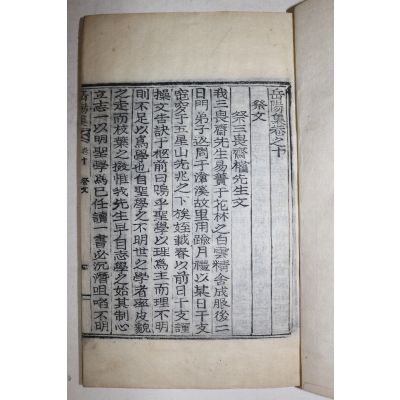 岳陽集卷之下
祭文
祭三畏齋權先生文
我三畏齋先生易簀于花林之白雲精舍成服後二
日門弟子返柩于滄溪故里用踰月禮以某日干支
窆于五星山先兆之下族姪載春以前日干支謹
操文告訣于柩前曰嗚乎聖學以理爲主而理不明
則不足以爲學也自聖學之不明世之學者率皮貌
之走而枝葉之掇惟我先生早自志學之始其制心
立志一以明聖學爲己任讀一書必沉潛咀唔不明
岳陽集 卷下 祭文